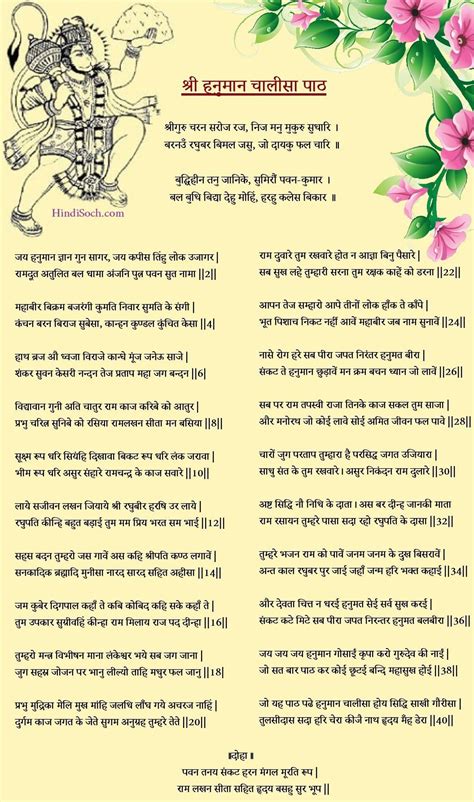 श्री हनुमान चालीसा पाठ
श्रीगुरु चरन सरोज रज, निज मनु मुकुरु सुधारि ।
बरनउँ रघुबर बिमल जसु, जो दायकु फल चारि ॥
बुद्धिहीन तनु जानिके, सुमिरौं पवन-कुमार ।
बल बुधि बिद्या देहु मोहिं, हरहु कलेस बिकार ॥
HindiSoch.com
जय हनुमान ज्ञान गुन सागर, जय कपीस तिंहु लोक उजागर |
रामदूत अतुलित बल धामा अंजनि पुत्र पवन सुत नामा ||2||
महाबीर बिक्रम बजरंगी कुमति निवार सुमति के संगी |
कंचन बरन बिराज सुबेसा, कान्हन कुण्डल कुंचित केसा ||4|
हाथ ब्रज औ ध्वजा विराजे कान्धे मूंज जनेऊ साजे |
शंकर सुवन केसरी नन्दन तेज प्रताप महा जग बन्दन ||6|
विद्यावान गुनी अति चातुर राम काज करिबे को आतुर |
प्रभु चरित्र सुनिबे को रसिया रामलखन सीता मन बसिया ||8|
सूक्ष्म रूप धरि सियंहि दिखावा बिकट रूप धरि लंक जरावा |
भीम रूप धरि असुर संहारे रामचन्द्र के काज सवारे ||10||
लाये सजीवन लखन जियाये श्री रघुबीर हरषि उर लाये |
रघुपति कीन्हि बहुत बड़ाई तुम मम प्रिय भरत सम भाई ||12||
सहस बदन तुम्हरो जस गावें अस कहि श्रीपति कण्ठ लगावें |
सनकादिक ब्रह्मादि मुनीसा नारद सारद सहित अहीसा ||14||
जम कुबेर दिगपाल कहाँ ते कबि कोबिद कहि सके कहाँ ते |
तुम उपकार सुग्रीवहिं कीन्हा राम मिलाय राज पद दीन्हा ||16||
तुम्हरो मन्त्र विभीषन माना लंकेश्वर भये सब जग जाना |
जुग सहस्र जोजन पर भानु लील्यो ताहि मधुर फल जानु ||18|
प्रभु मुद्रिका मेलि मुख मांहि जलधि लाँघ गये अचरज नाहिं |
दुर्गम काज जगत के जेते सुगम अनुग्रह तुम्हरे तेते ||20||
राम दुवारे तुम रखवारे होत न आज्ञा बिनु पैसारे |
सब सुख लहे तुम्हारी सरना तुम रक्षक काहें को डरना ||22||
आपन तेज सम्हारो आपे तीनों लोक हाँक ते काँपे |
भूत पिशाच निकट नहीं आवें महाबीर जब नाम सुनावें ||24||
नासे रोग हरे सब पीरा जपत निरंतर हनुमत बीरा |
संकट ते हनुमान छुड़ावें मन क्रम बचन ध्यान जो लावें ||26||
सब पर राम तपस्वी राजा तिनके काज सकल तुम साजा |
और मनोरथ जो कोई लावे सोई अमित जीवन फल पावे ||28||
चारों जुग परताप तुम्हारा है परसिद्ध जगत उजियारा |
साधु संत के तुम रखवारे । असुर निकंदन राम दुलारे ||30||
अष्ट सिद्धि नौ निधि के दाता । अस बर दीन्ह जानकी माता
राम रसायन तुम्हरे पासा सदा रहो रघुपति के दासा ||32||
तुम्हरे भजन राम को पावें जनम जनम के दुख बिसरावें |
अन्त काल रघुबर पुर जाई जहाँ जन्म हरि भक्त कहाई ||34||
और देवता चित्त न धरई हनुमत सेई सर्व सुख करई |
संकट कटे मिटे सब पीरा जपत निरन्तर हनुमत बलबीरा ||36||
जय जय जय हनुमान गोसाईं कृपा करो गुरुदेव की नाईं |
जो सत बार पाठ कर कोई छूटई बन्दि महासुख होई ||38||
जो यह पाठ पढे हनुमान चालीसा होय सिद्धि साखी गौरीसा |
तुलसीदास सदा हरि चेरा कीजै नाथ हृदय मँह डेरा ||40||
॥दोहा॥
पवन तनय संकट हरन मंगल मूरति रूप |
राम लखन सीता सहित हृदय बसहु सुर भूप ||